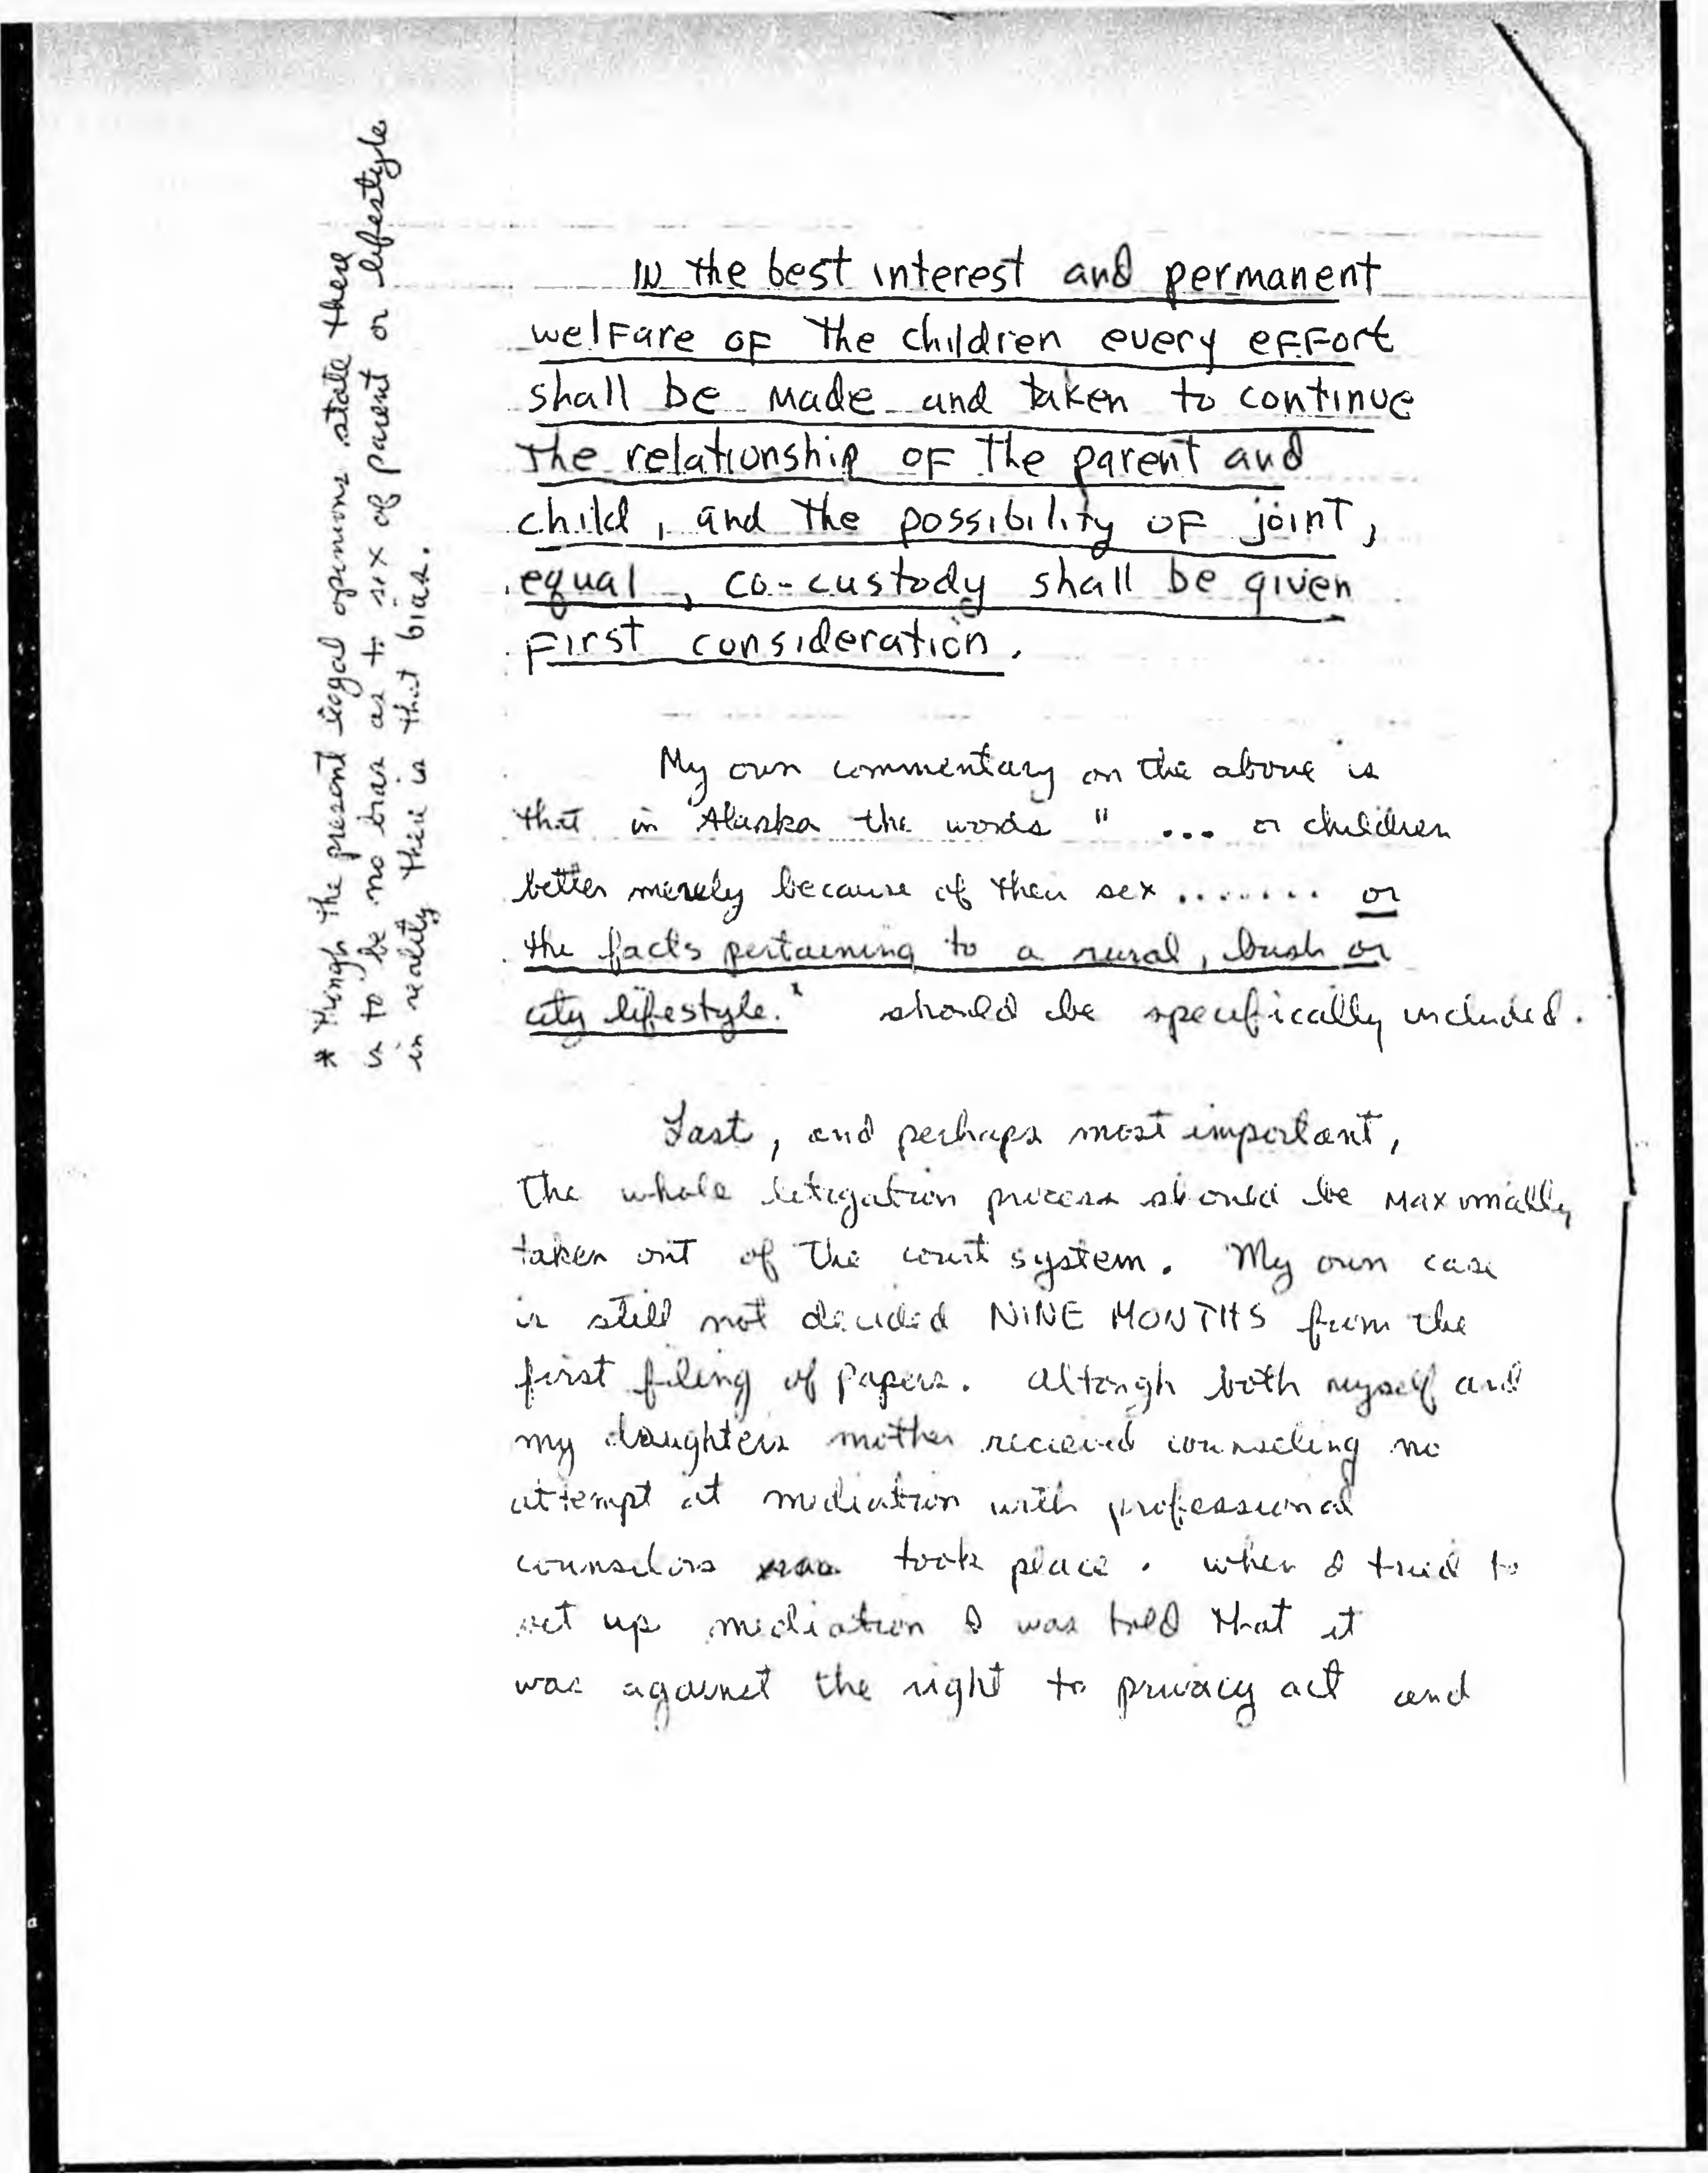 IN the best interest and permanent
welfare of the children every effort
shall be made and taken to continue
the relationship of the parent and
child, and the possibility of joint,
equal, co-custody shall be given
first consideration.
My own commentary on the above is
that in Alaska the words " ... or children
better merely because of their sex ........ or
the facts pertaining to a rural, bush or
city lifestyle." should be specifically included.
Last, and perhaps most important,
the whole litigation process should be maximally
taken out of the court system. My own case
is still not decided NINE MONTHS from the
first filing of papers. Altough both myself and
my daughters mother recieved counseling no
attempt at mediation with professional
counselors took place. When I tried to
set up mediation I was told that it
was against the right to privacy act and
* Though the present legal opinions state there
is to be no bias as to sex of parent or lifestyle
in reality there is that bias.